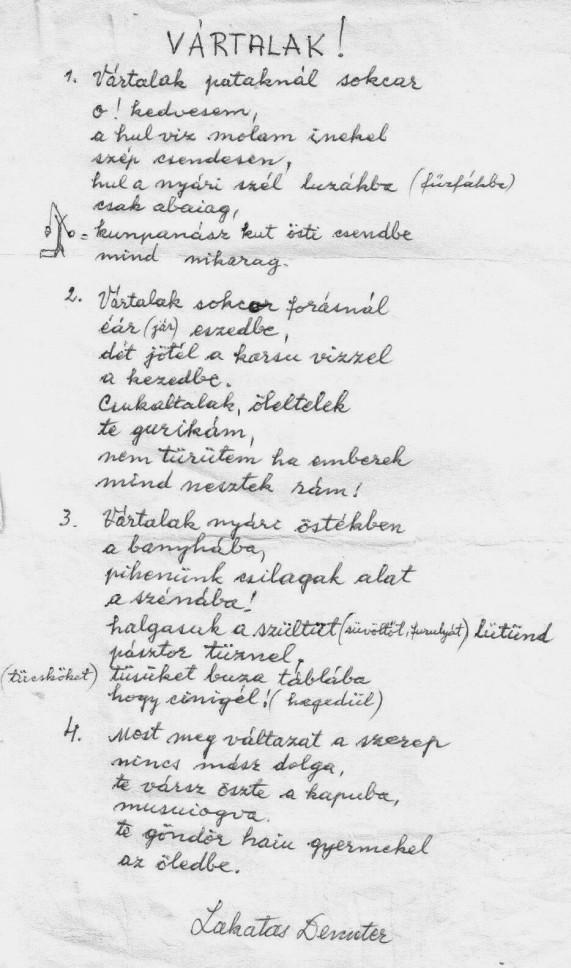 VÁRTALAK!
1. Vártalak pataknál sokcar
o! kedvesem,
a hul viz molam inekel
szép csendesen,
hul a nyári szél luzákba (fűzfákba)
csak abaiag,
= kunpanász kut östi csendbe
mind nikarag.
2. Vártalak sokcor forásnál
éár (jár) eszedbe,
dét jötél a korsu vizzel
a kezedbe.
Csukaltalak, öleltelek
te gurikám,
nem türütem ha emberek
mind nesztek rám!
3. Vártalak nyári östékben
a banyhába,
pihenünk csilagak alat
a szénába!
halgasuk a szültüt (süvöltőt, furulyát) lütünd
pásztor tüznel,
(tücsköket) tüsüket buza táblába
hogy cinigél! (hegedül)
4. Most meg váltazat a szerep
nincs mász dolga,
te vársz öszte a kapuba,
musuiogva.
te göndör haiu gyermekel
az öledbe.
Lakatas Demuter